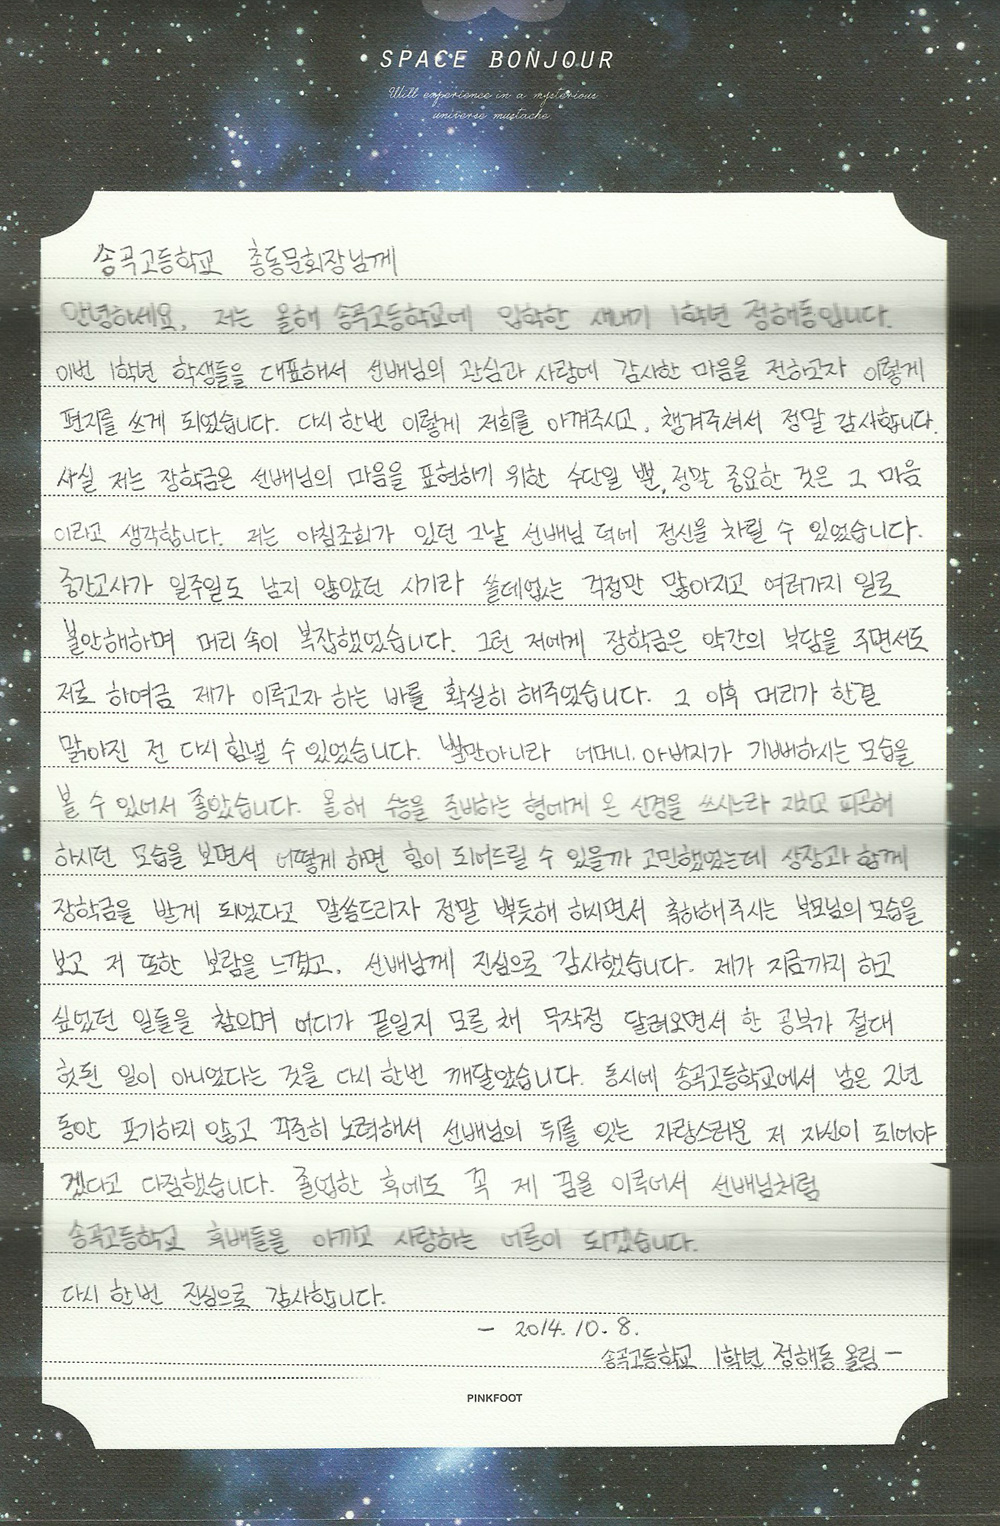 SPACE BONJOUR
Will experience in a mysterious
universe mustache
송곡고등학교 총동문회장님께
안녕하세요, 저는 올해 송곡고등학교에 입학한 새내기 1학년 정해동입니다.
이번 1학년 학생들을 대표해서 선배님의 관심과 사랑에 감사한 마음을 전하고자 이렇게
편지를 쓰게 되었습니다. 다시 한번 이렇게 저희를 아껴주시고, 챙겨주셔서 정말 감사합니다.
사실 저는 장학금은 선배님의 마음을 표현하기 위한 수단일 뿐, 정말 중요한 것은 그 마음
이라고 생각합니다. 저는 아침조회가 있던 그날 선배님 덕에 정신을 차릴 수 있었습니다.
중간고사가 일주일도 남지 않았던 시기라 쓸데없는 걱정만 많아지고 여러가지 일로
불안해하며 머리 속이 복잡했었습니다. 그런 저에게 장학금은 약간의 부담을 주면서도
저로 하여금 제가 이루고자 하는 바를 확실히 해주었습니다. 그 이후 머리가 한결
맑아진 전 다시 힘낼 수 있었습니다. 뿐만아니라 어머니, 아버지가 기뻐하시는 모습을
볼 수 있어서 좋았습니다. 올해 수능을 준비하는 형에게 온 신경을 쓰시느라 지치고 피곤해
하시던 모습을 보면서 어떻게 하면 힘이 되어드릴 수 있을까 고민했었는데 상장과 함께
장학금을 받게 되었다고 말씀드리자 정말 뿌듯해 하시면서 축하해주시는 부모님의 모습을
보고 저 또한 보람을 느꼈고, 선배님께 진심으로 감사했습니다. 제가 지금까지 하고
싶었던 일들을 참으며 어디가 끝일지 모른 채 무작정 달려오면서 한 공부가 절대
헛된 일이 아니었다는 것을 다시 한번 깨달았습니다. 동시에 송곡고등학교에서 남은 2년
동안 포기하지 않고 꾸준히 노력해서 선배님의 뒤를 잇는 자랑스러운 저 자신이 되어야
겠다고 다짐했습니다. 졸업한 후에도 꼭 제 꿈을 이루어서 선배님처럼
송곡고등학교 후배들을 아끼고 사랑하는 어른이 되겠습니다.
다시 한번 진심으로 감사합니다.
- 2014. 10. 8.
송곡고등학교 1학년 정해동 올림 -
PINKFOOT